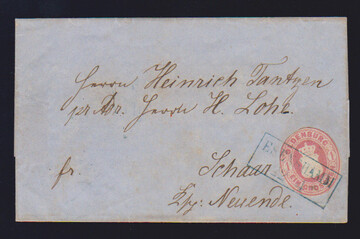 Herrn Heinrich Tantzen
pr Adr. Herrn H. Lohe.
fr.
Schaar
Ksp. Neuende.
OLDENBURG